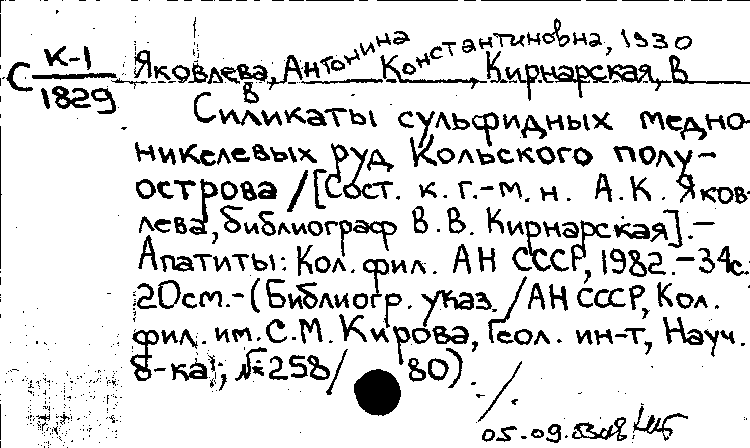 К-1
С 1829
Яковлева, Антонина Константиновна, 1930
Кирнарская, В В
Силикаты сульфидных медно-
никелевых руд Кольского полу-
острова / [Сост. к. г.-м. н. А.К. Яков-
лева, библиограф В.В. Кирнарская].-
Апатиты: Кол. фил. АН СССР, 1982.-34с.;
20см.-(Библиогр. указ. / АН СССР, Кол.
фил. им. С.М. Кирова, Геол. ин-т, Науч.
б-ка; №258/ 80).
05.09.83